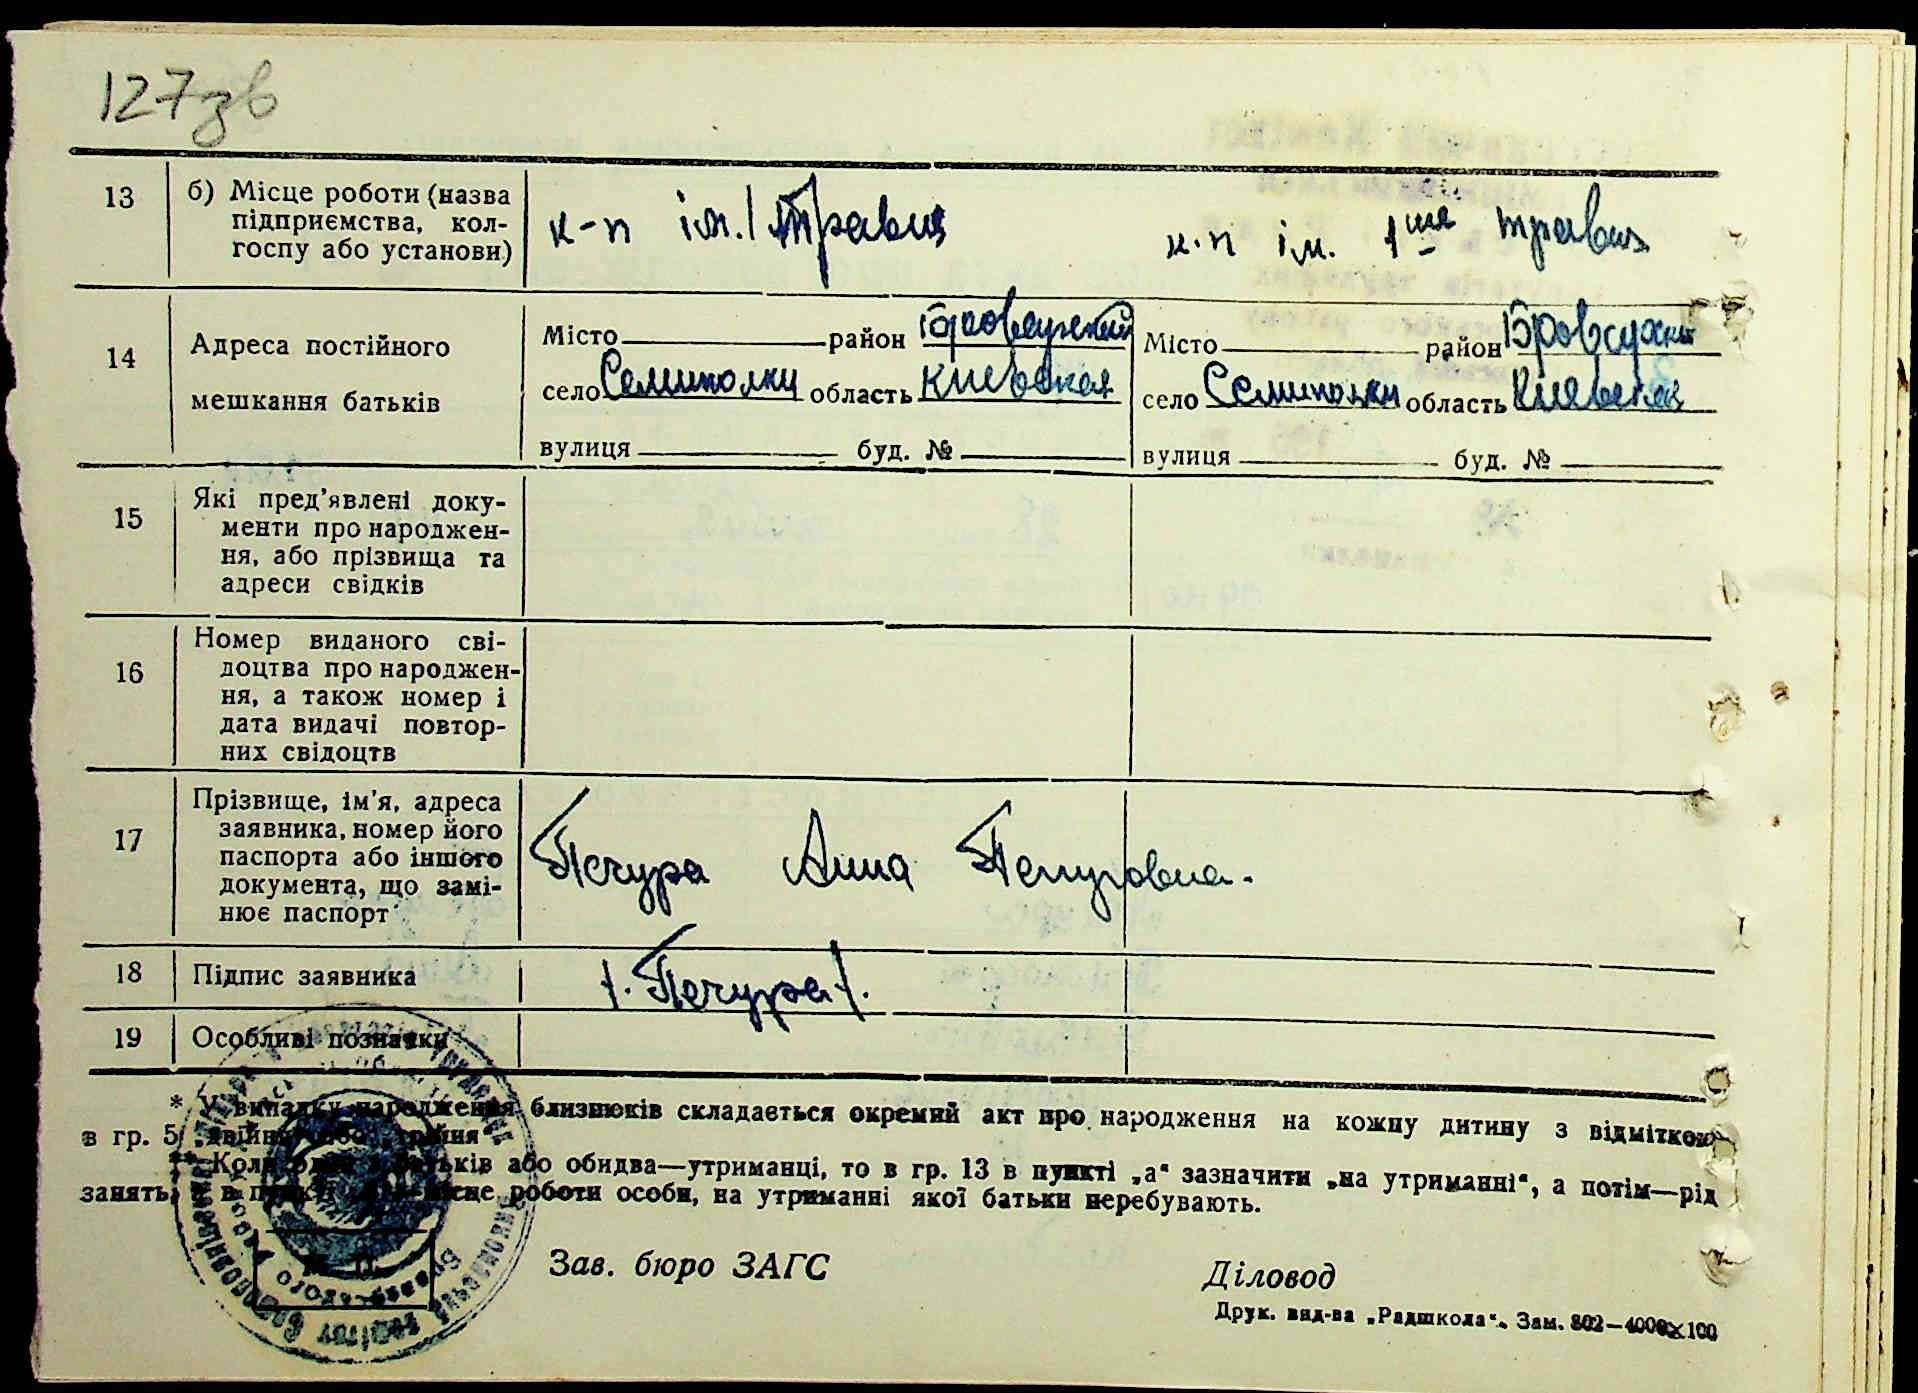 127зв
13 б) Місце роботи (назва
підприємства, кол-
госпу або установи)
к-п ім. 1 Травня к.п ім. 1шя травня
14 Адреса постійного
мешкання батьків
Місто район Броварський Місто район
село Семиполки область Киевская село Семиполки область Киевская
вулиця буд. № вулиця буд. №
15 Які пред'явлені доку-
менти про народжен-
ня, або прізвища та
адреси свідків
16 Номер виданого сві-
доцтва про народжен-
ня, а також номер і
дата видачі повтор-
них свідоцтв
17 Прізвище, ім'я, адреса
заявника, номер його
паспорта або іншого
документа, що замі-
нює паспорт
Печура Анна
18 Підпис заявника /. Печура /.
19 Особливі позначки
* У випадку народження близнюків складається окремий акт про народження на кожну дитину з відміткою
в гр. 5 „двійня“ або „трійня“.
** Коли один з батьків або обидва—утриманці, то в гр. 13 в пункті „а“ зазначити „на утриманні“, а потім—рід
занять, а в пункті місце роботи особи, на утриманні якої батьки перебувають.
Зав. бюро ЗАГС Діловод
Друк. вид-ва „Радшкола“. Зам. 802—4000×100